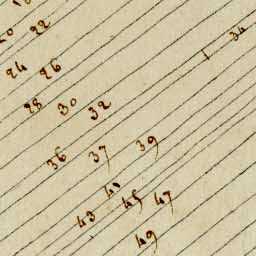 22
1 34
24 26
28 30 32
36 37 39
40
43 45 47
49